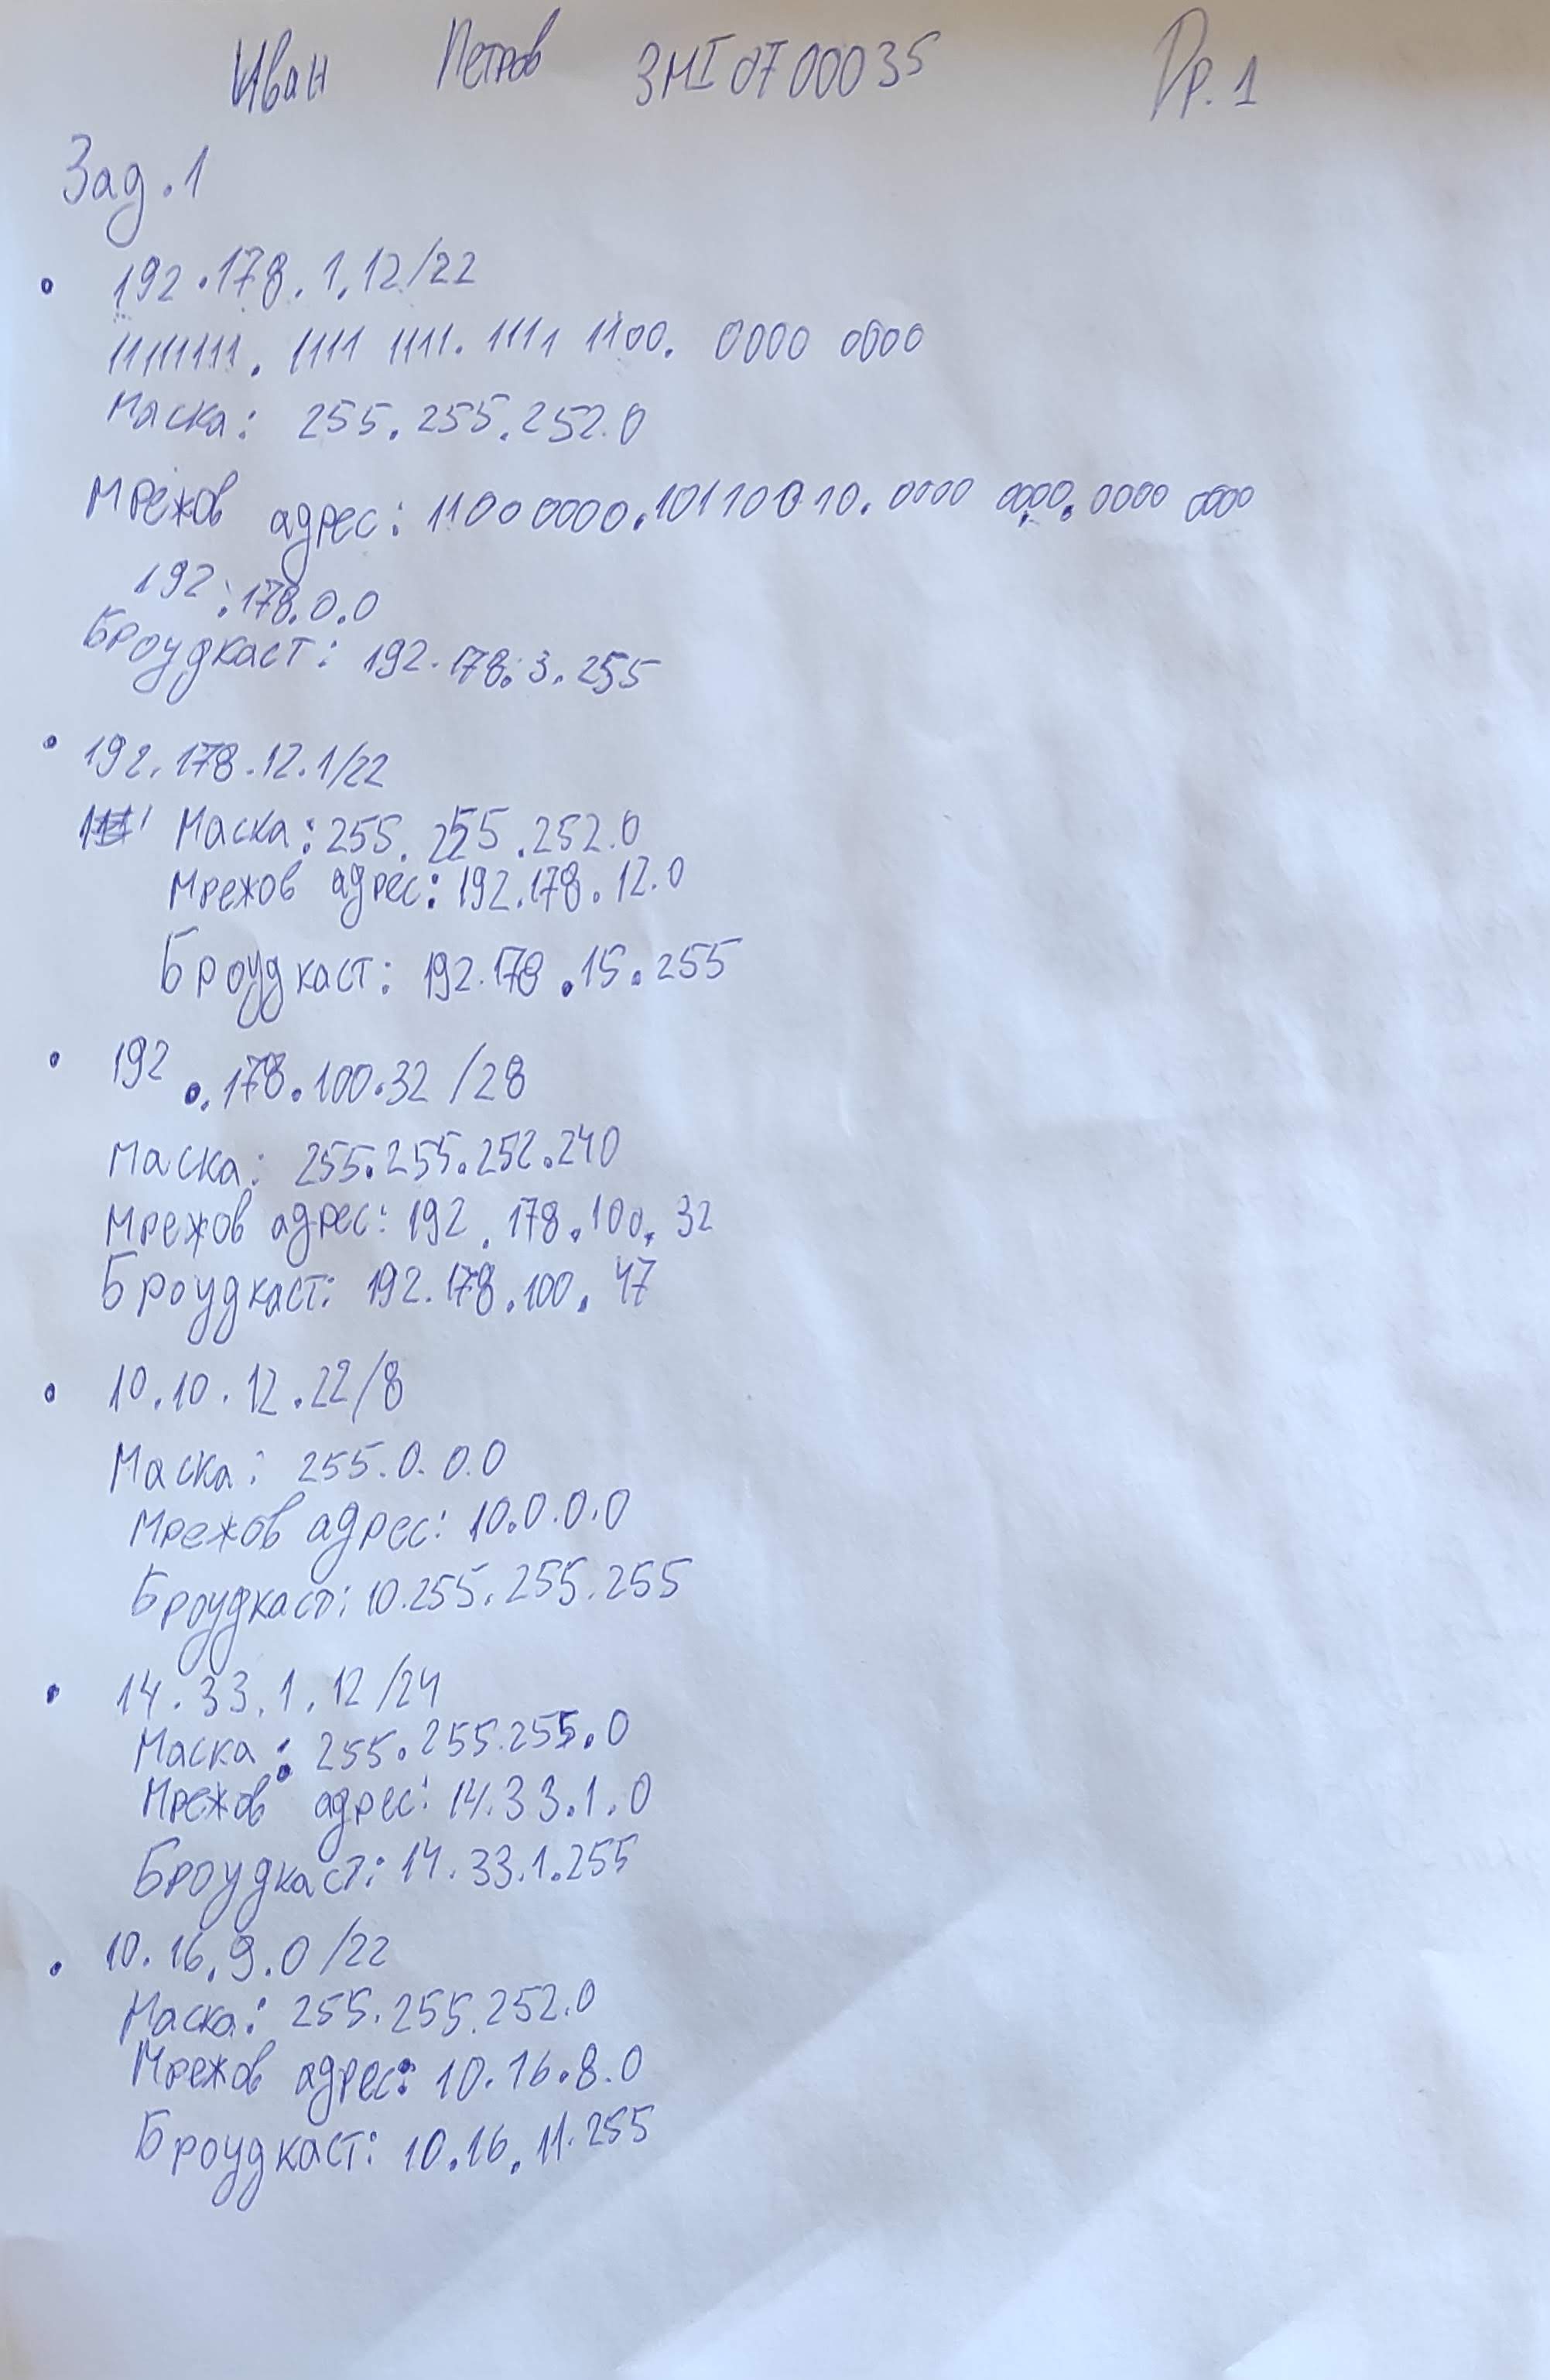 Иван Петров 3MI0700035 Гр. 1
Зад. 1
192.178.1.12/22
11111111. 1111 1111. 1111 1100. 0000 0000
Маска: 255.255.252.0
Мрежов адрес: 11000000.10110010.0000 0000.0000 0000
192.178.0.0
Броудкаст: 192.178.3.255
192.178.12.1/22
Маска: 255.255.252.0
Мрежов адрес: 192.178.12.0
Броудкаст: 192.178.15.255
192.178.100.32 /28
Маска: 255.255.252.240
Мрежов адрес: 192.178.100.32
Броудкаст: 192.178.100.47
10.10.12.22/8
Маска: 255.0.0.0
Мрежов адрес: 10.0.0.0
Броудкаст: 10.255.255.255
14.33.1.12/24
Маска: 255.255.255.0
Мрежов адрес: 14.33.1.0
Броудкаст: 14.33.1.255
10.16.9.0/22
Маска: 255.255.252.0
Мрежов адрес: 10.16.8.0
Броудкаст: 10.16.11.255